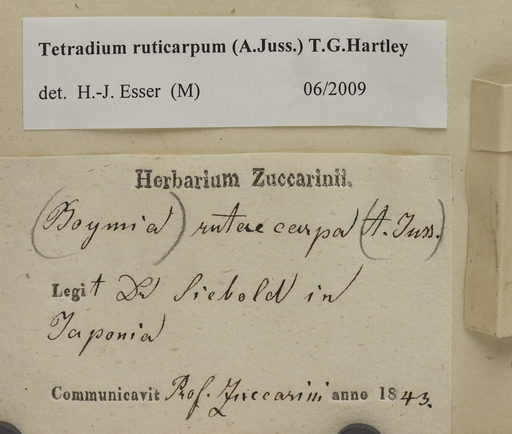 Tetradium ruticarpum (A.Juss.) T.G.Hartley
det. H.-J. Esser (M) 06/2009
Herbarium Zuccarinii.
(Boymia) rutaecarpa (A. Juss.)
Legit Dr Siebold in
Japonia
Communicavit Prof. Zuccarini anno 1843.